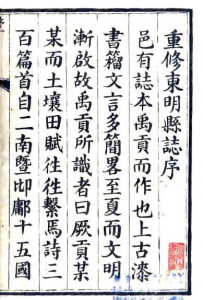 重修東明縣誌序
邑有誌本禹貢而作也上古漆
書籀文言多簡畧至夏而文明
漸啟故禹貢所識者曰厥貢某
某而土壤田賦徃徃繫焉詩三
百篇首自二南暨邶鄘十五國